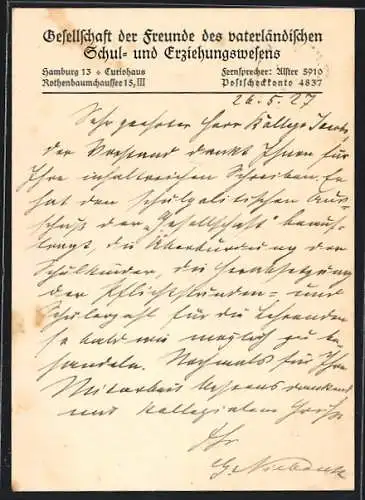 Gesellschaft der Freunde des vaterländischen
Schul- und Erziehungswesens
Hamburg 13 + Curiohaus
Rothenbaumchaussee 15, III
Fernsprecher: Alster 5910
Postscheckkonto 4837
26.5.27
Sehr geehrter Herr Kollege
der Vorstand dankt Ihnen für
Ihre inhaltreichen Schreiben. Er
hat den schulpolitischen Aus-
schuß der „Gesellschaft" beauf-
tragt, die Überbürdung der
Schulkinder, die Herabsetzung
der Pflichtstunden- und
Schülerzahl für die Lehrenden
so bald wie möglich zu be-
handeln. Nochmals für Ihre
Mitarbeit bestens dankend
und kollegialem Gruß
Ihr
G.